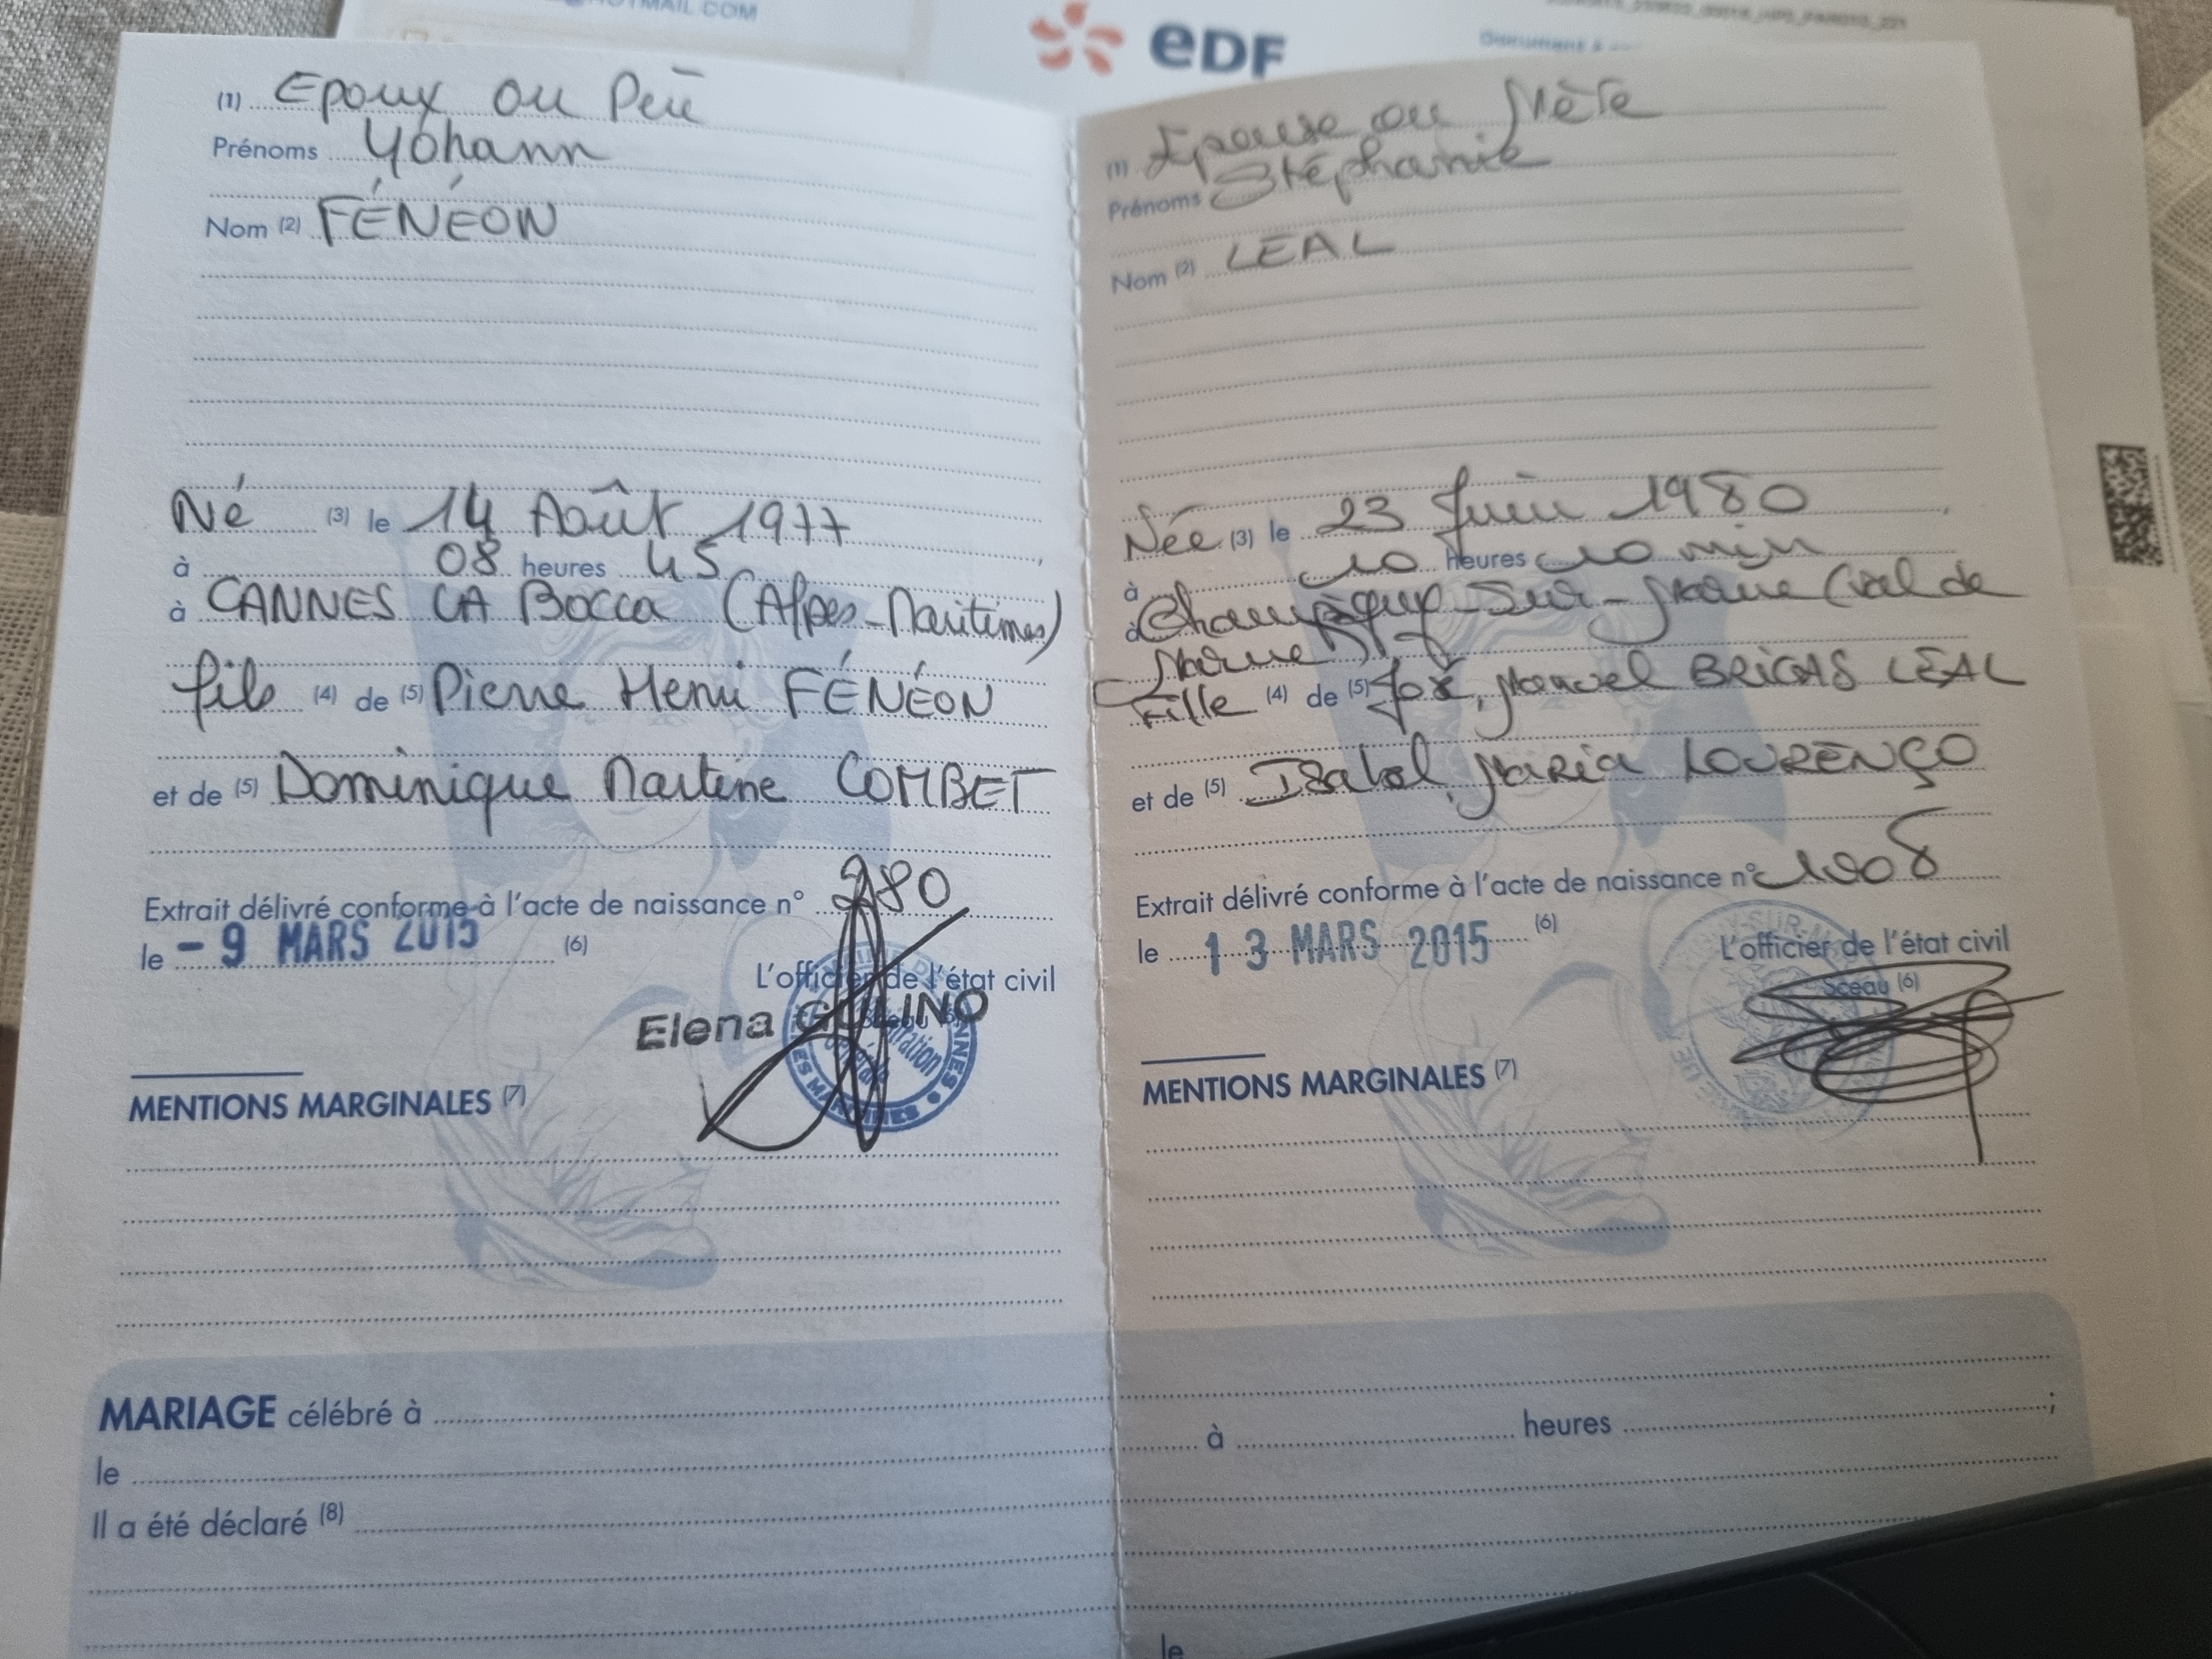 HOTMAIL.COM
eDF
(1) Epoux ou Père
Prénoms Yohann
Nom (2) FÉNÉON
Né (3) le 14 Août 1977
à 08 heures 45,
à CANNES LA Bocca (Alpes-Maritimes)
fils (4) de (5) Pierre Henri FÉNÉON
et de (5) Dominique Martine COMBET
Extrait délivré conforme à l'acte de naissance n° 280
le - 9 MARS 2015 (6)
L'officier de l'état civil
Elena
MENTIONS MARGINALES (7)
(1) Epouse ou Mère
Prénoms Stéphanie
Nom (2) LEAL
Née (3) le 23 Juin 1980,
à 10 heures 10 min
à Champigny-Sur-Marne (Val de
Marne)
Fille (4) de (5) José, Manuel BRIGAS LEAL
et de (5) Isabel, Maria LOURENÇO
Extrait délivré conforme à l'acte de naissance n° 1008
le 13 MARS 2015 (6)
L'officier de l'état civil
Sceau (6)
MENTIONS MARGINALES (7)
MARIAGE célébré à
le à heures ;
Il a été déclaré (8)
le